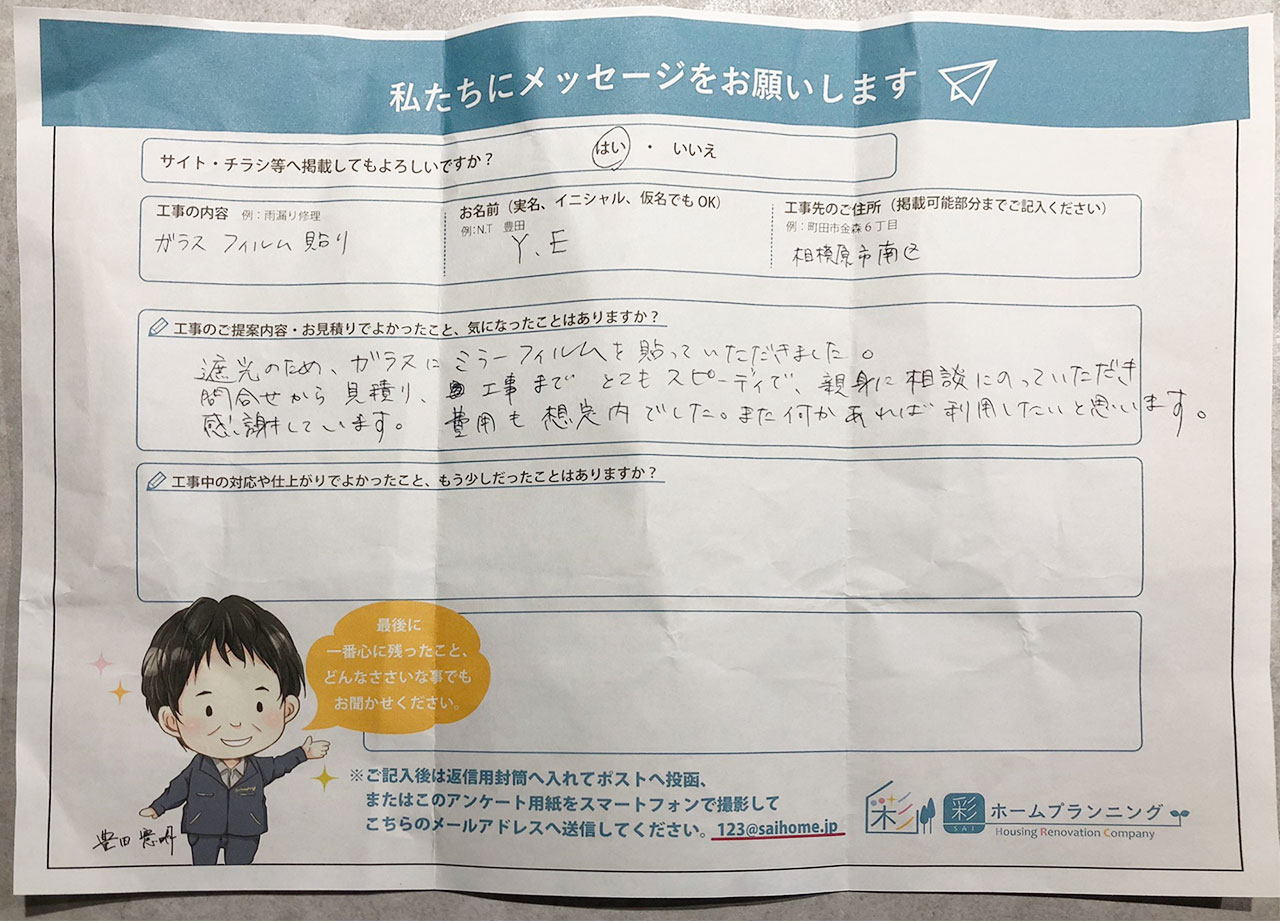 私たちにメッセージをお願いします
サイト・チラシ等へ掲載してもよろしいですか？
はい ・ いいえ
工事の内容 例：雨漏り修理
ガラス フィルム 貼り
お名前（実名、イニシャル、仮名でも OK）
例：N.T 豊田
Y、E
工事先のご住所（掲載可能部分までご記入ください）
例：町田市金森６丁目
相模原市南区
工事のご提案内容・お見積りでよかったこと、気になったことはありますか？
遮光のため、ガラスにミラーフィルムを貼っていただきました。
問合せから見積り、工事まで とてもスピーディで、親身に相談にのっていただき
感謝しています。 費用も想定内でした。また何かあれば利用したいと思います。
工事中の対応や仕上がりでよかったこと、もう少しだったことはありますか？
最後に
一番心に残ったこと、
どんなささいな事でも
お聞かせください。
※ご記入後は返信用封筒へ入れてポストへ投函、
またはこのアンケート用紙をスマートフォンで撮影して
こちらのメールアドレスへ送信してください。123@saihome.jp
豊田
彩
彩
SAI
ホームプランニング
Housing Renovation Company